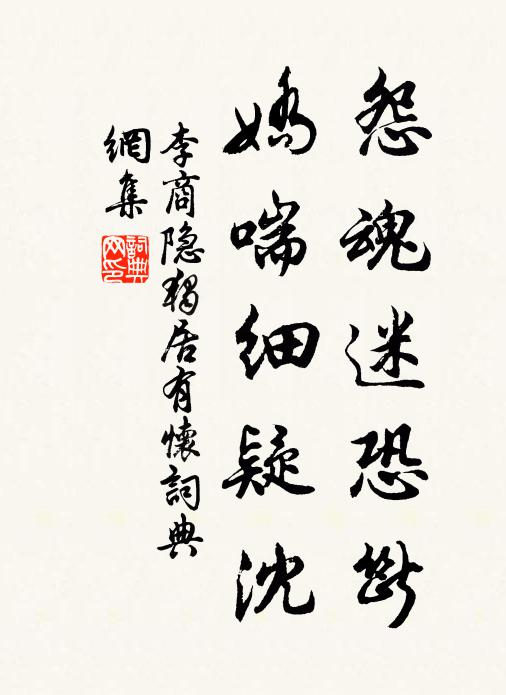 怨魂迷恐断
娇喘细疑沈
李商隐独居有怀词典
網集
詞典网印